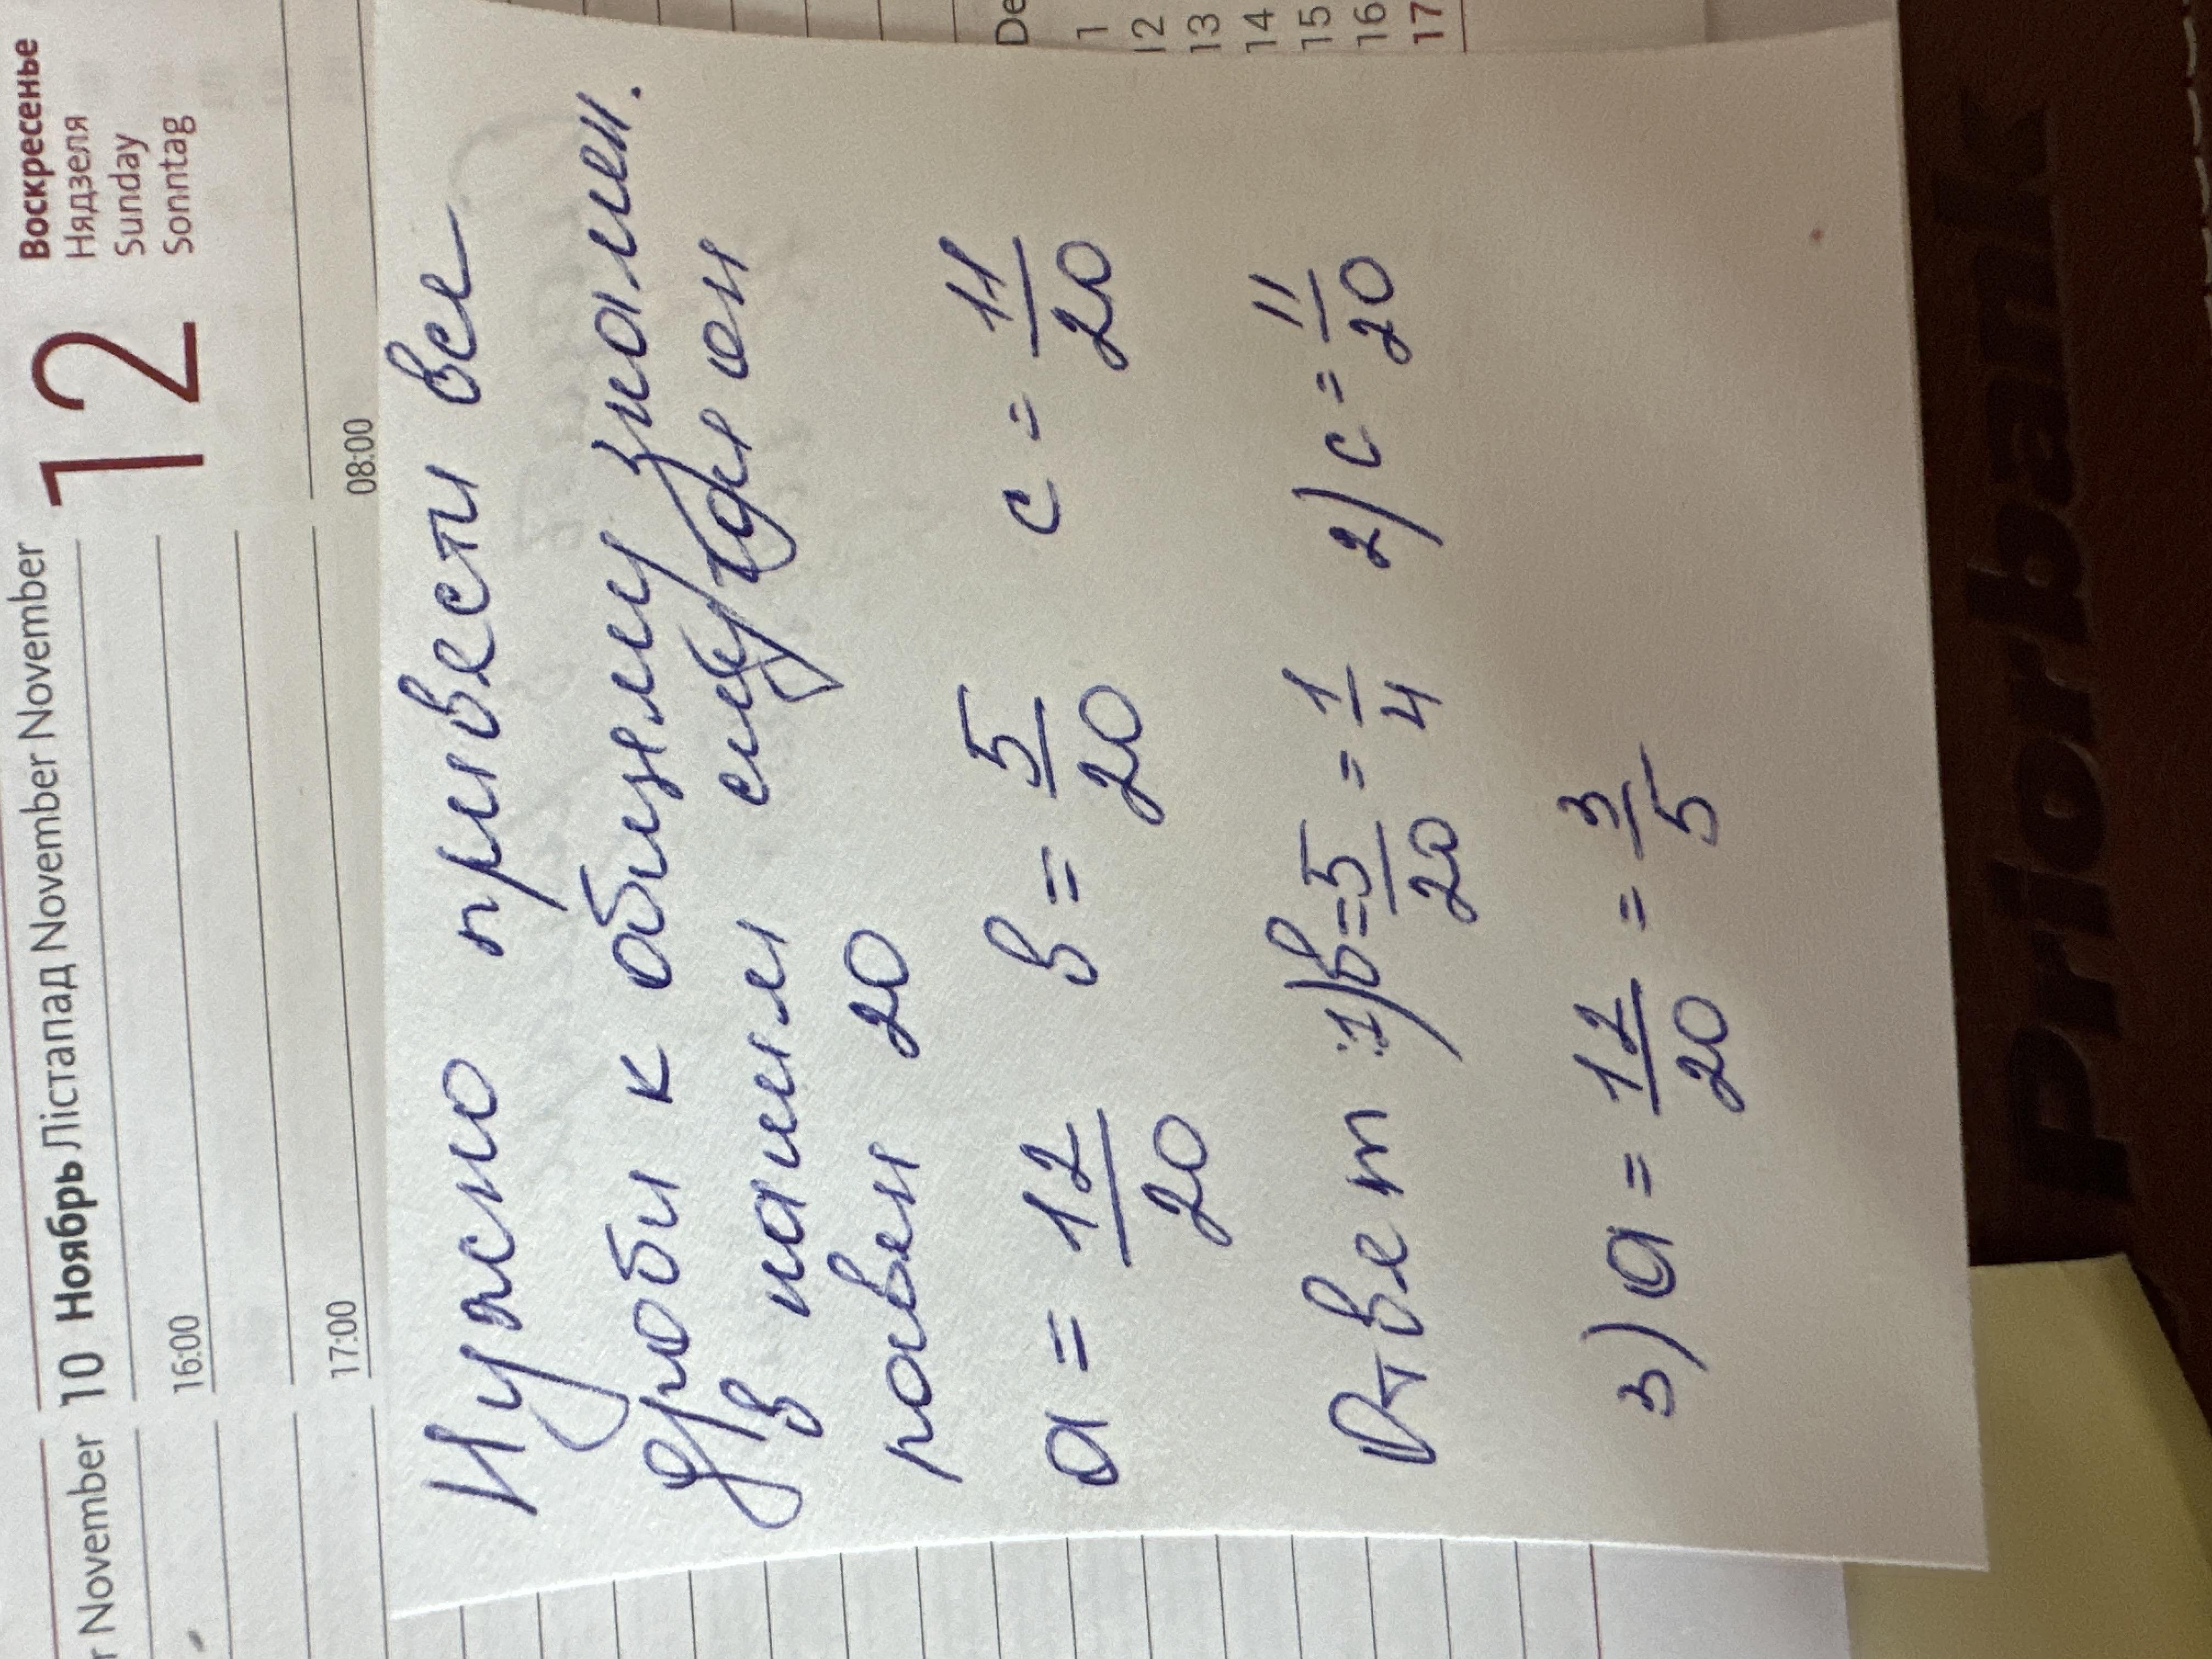 November 10 Ноябрь Лістапад November November 12 Воскресенье
Нядзеля
Sunday
Sonntag
16:00
17:00 08:00
De
1
12
13
14
15
16
17
Нужно привести все
дроби к общему знамен.
В нашем случае он
равен 20
a = 12/20 в = 5/20 c = 11/20
Ответ: 1) в = 5/20 = 1/4 2) c = 11/20
3) a = 12/20 = 3/5
Priorbank